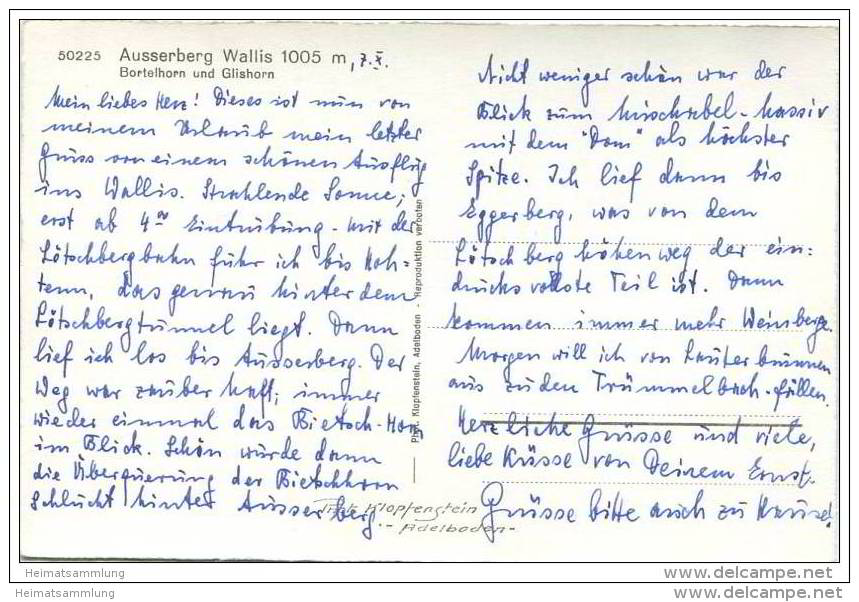 50225 Ausserberg Wallis 1005 m, 7.X.
Bortelhorn und Glishorn
Mein liebes Herz! Dieses ist nun von
meinem Urlaub mein letzter
Gruss von einem schönen Ausflug
ins Wallis. Strahlende Sonne;
erst ab 4 Eintrübung. Mit der
Lötschbergbahn fuhr ich bis Hoh=
tenn, das genau hinter dem
Lötschbergtunnel liegt. Dann
lief ich los bis Ausserberg. Der
Weg war zauberhaft; immer
wieder einmal das Bietsch-Horn
im Blick. Schön wurde dann
die Überquerung der Bietschhorn
schlucht hinter Ausserberg
Phot. Klopfenstein, Adelboden - Reproduktion verboten
Nicht weniger schön war der
Blick zum Mischabel-Massiv
mit dem "Dom" als höchster
Spitze. Ich lief dann bis
Eggerberg, was von dem
Lötschberghöhenweg der ein=
drucksvollste Teil ist. Dann
kommen immer mehr Weinberge.
Morgen will ich von Lauterbrunnen
aus zu den Trümmelbach-fällen.
Herzliche Grüsse und viele,
liebe Küsse von Deinem Ernst.
Grüsse bitte auch zu Hause!
Phot. Klopfenstein
- Adelboden -
Heimatsammlung
Heimatsammlung
www.delcampe.net
www.delcampe.net